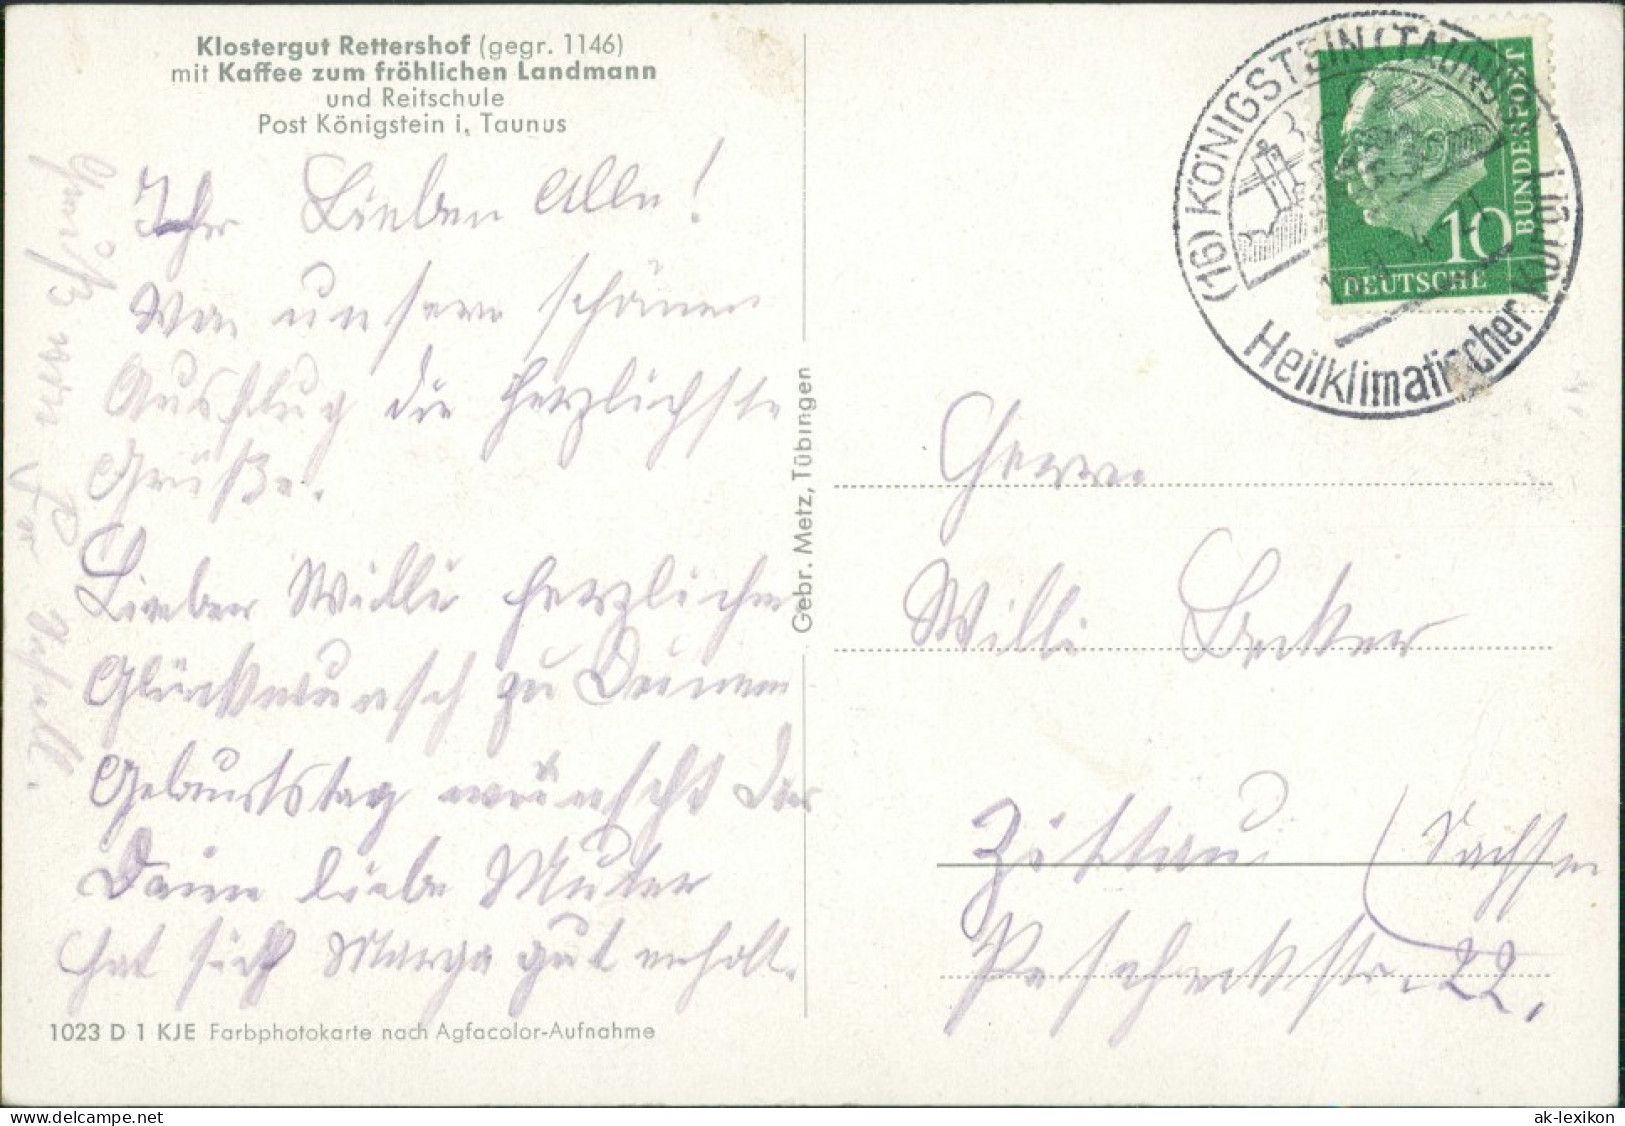 Klostergut Rettershof (gegr. 1146)
mit Kaffee zum fröhlichen Landmann
und Reitschule
Post Königstein i. Taunus
Ihr Lieben Alle!
Von unserem schönen
Ausflug die herzlichste
Grüße.
Lieber Willi herzlichen
Glückwunsch zu Deinem
Geburtstag wünscht Dir
Deine liebe Mutter
hat sich Marga gut erholt.
1023 D 1 KJE Farbphotokarte nach Agfacolor-Aufnahme
Gebr. Metz, Tübingen
(16) KÖNIGSTEIN (TAUNUS)
Heilklimatischer Kurort
10
DEUTSCHE
BUNDESPOST
Herrn
Willi Becker
Zittau (Sachsen
Peschekstr. 22,
delcampe.net
ak-lexikon